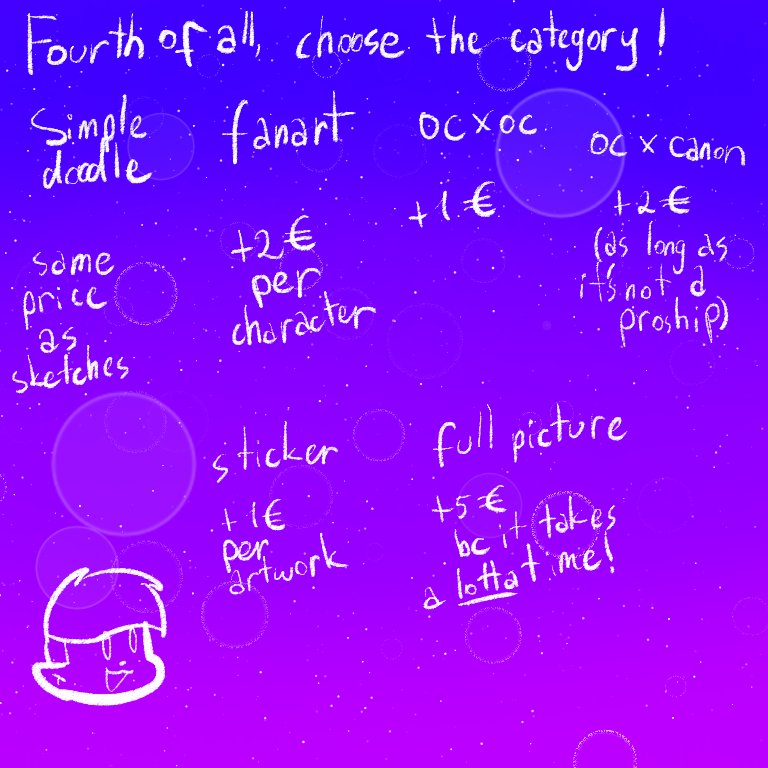 Fourth of all, choose the category!
Simple
doodle
same
price
as
sketches
fanart
+2€
per
character
OC x OC
+1€
OC x canon
+2€
(as long as
it's not a
proship)
sticker
+1€
per
artwork
full picture
+5€
bc it takes
a lotta t me!